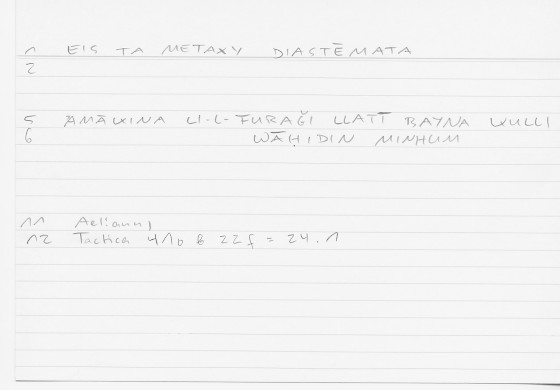 1 EIS TA METAXY DIASTĒMATA
2
5 AMĀKINA LI-L-FURAǦI LLATĪ BAYNA KULLI
6 WĀḤIDIN MINHUM
11 Aelianus,
12 Tactica 41b & 22 f = 24.1